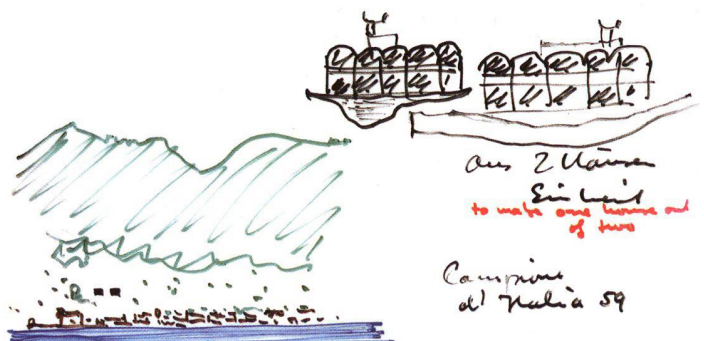 aus 2 Häusern
Einheit
to make one house out
of two
Campione
d'Italia 59